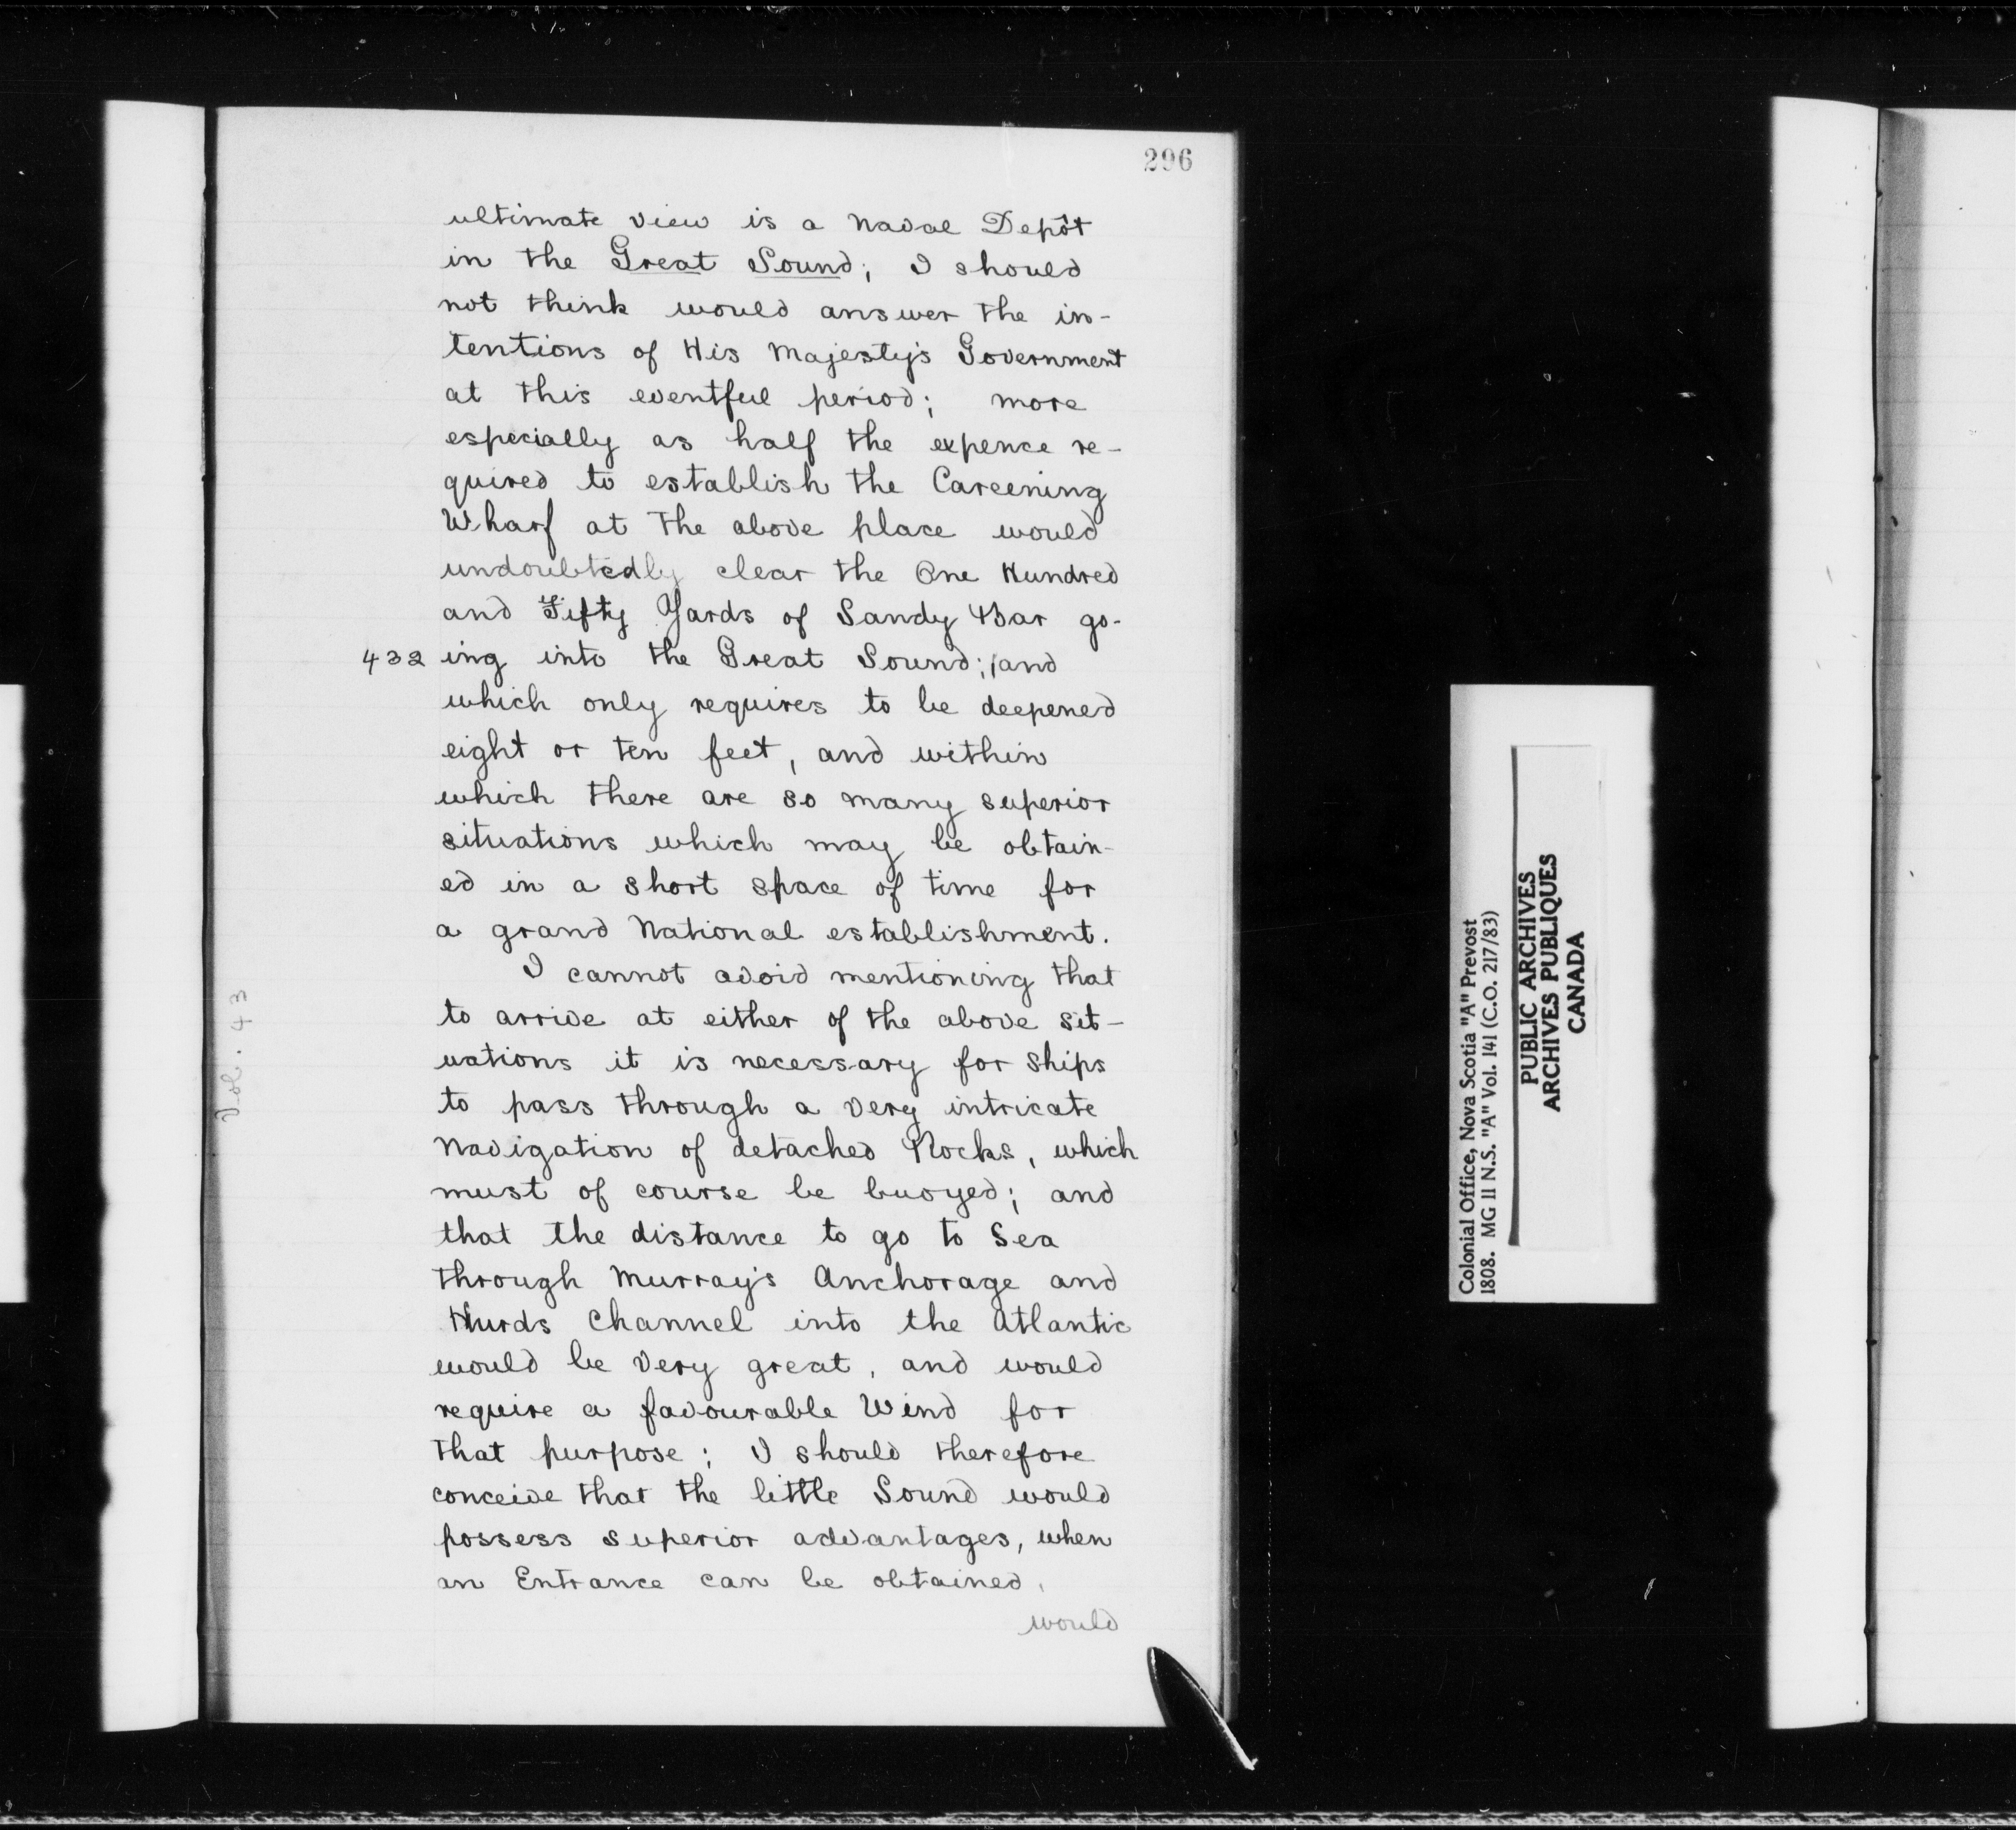 296
ultimate view is a Naval Depôt
in the Great Sound; I should
not think would answer the in-
tentions of His Majesty's Government
at this eventful period; more
especially as half the expence re-
quired to establish the Careening
Wharf at the above place would
undoubtedly clear the One Hundred
and Fifty Yards of Sandy Bar go-
432 ing into the Great Sound; /and
which only requires to be deepened
eight or ten feet, and within
which there are so many superior
situations which may be obtain-
ed in a short space of time for
a grand National establishment.
I cannot avoid mentioning that
to arrive at either of the above sit-
uations it is necessary for Ships
to pass through a very intricate
Navigation of detached Rocks, which
must of course be buoyed; and
that the distance to go to Sea
through Murray's Anchorage and
Hurds Channel into the Atlantic
would be very great, and would
require a favourable Wind for
that purpose; I should therefore
conceive that the little Sound would
possess superior advantages, when
an Entrance can be obtained,
would
Vol. 43
Colonial Office, Nova Scotia "A" Prevost
1808. MG 11 N.S. "A" Vol. 141 (C.O. 217/83)
PUBLIC ARCHIVES
ARCHIVES PUBLIQUES
CANADA